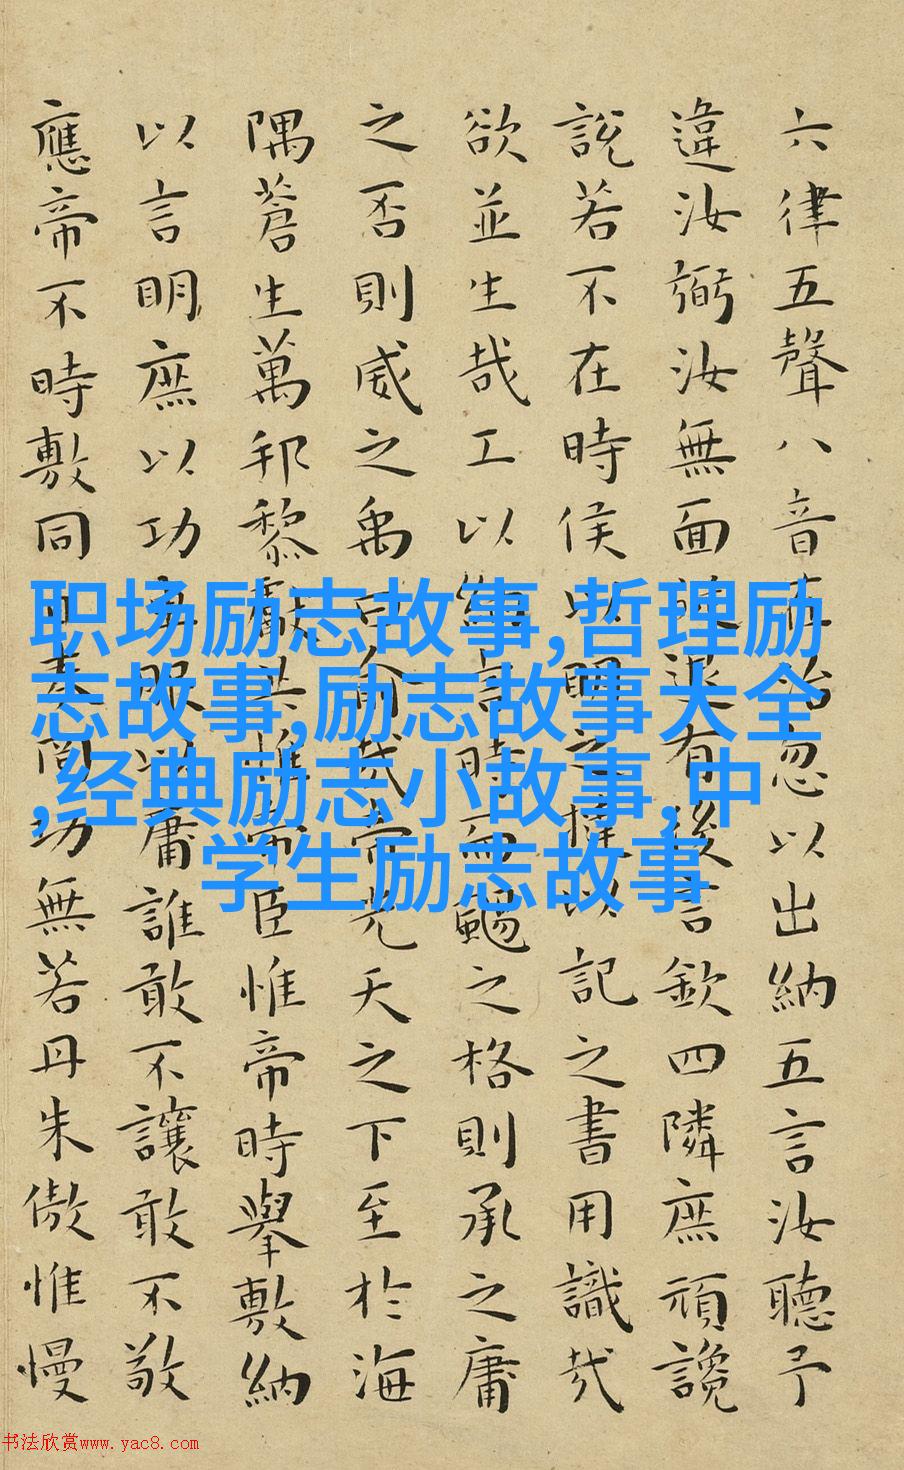 六律五聲八音在治忽以出納五言汝聽予
違汝弼汝無面從退有後言欽四隣庶頑讒
說若不在時侯以明之撻以記之書用識哉
欲並生哉工以納言時而颺之格則承之庸
之否則威之禹曰俞哉帝光天之下至於海
隅蒼生萬邦黎獻共惟帝臣惟帝時舉敷納
以言明庶以功車服以庸誰敢不讓敢不敬
應帝不時敷同日奏罔功無若丹朱傲惟慢
职场励志故事,哲理励
志故事,励志故事大全
,经典励志小故事,中
学生励志故事
书法欣赏www.yac8.com